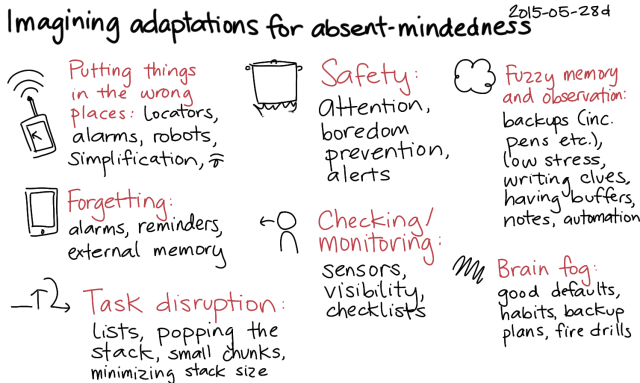 Imagining adaptations for absent-mindedness
2015-05-28d
Putting things
in the wrong
places: locators,
alarms, robots,
simplification,
Forgetting:
alarms, reminders,
external memory
Task disruption:
lists, popping the
stack, small chunks,
minimizing stack size
Safety:
attention,
boredom
prevention,
alerts
Checking/
monitoring:
sensors,
visibility,
checklists
Fuzzy memory
and observation:
backups (inc.
pens etc.),
low stress,
writing clues,
having buffers,
notes, automation
Brain fog:
good defaults,
habits, backup
plans, fire drills
K